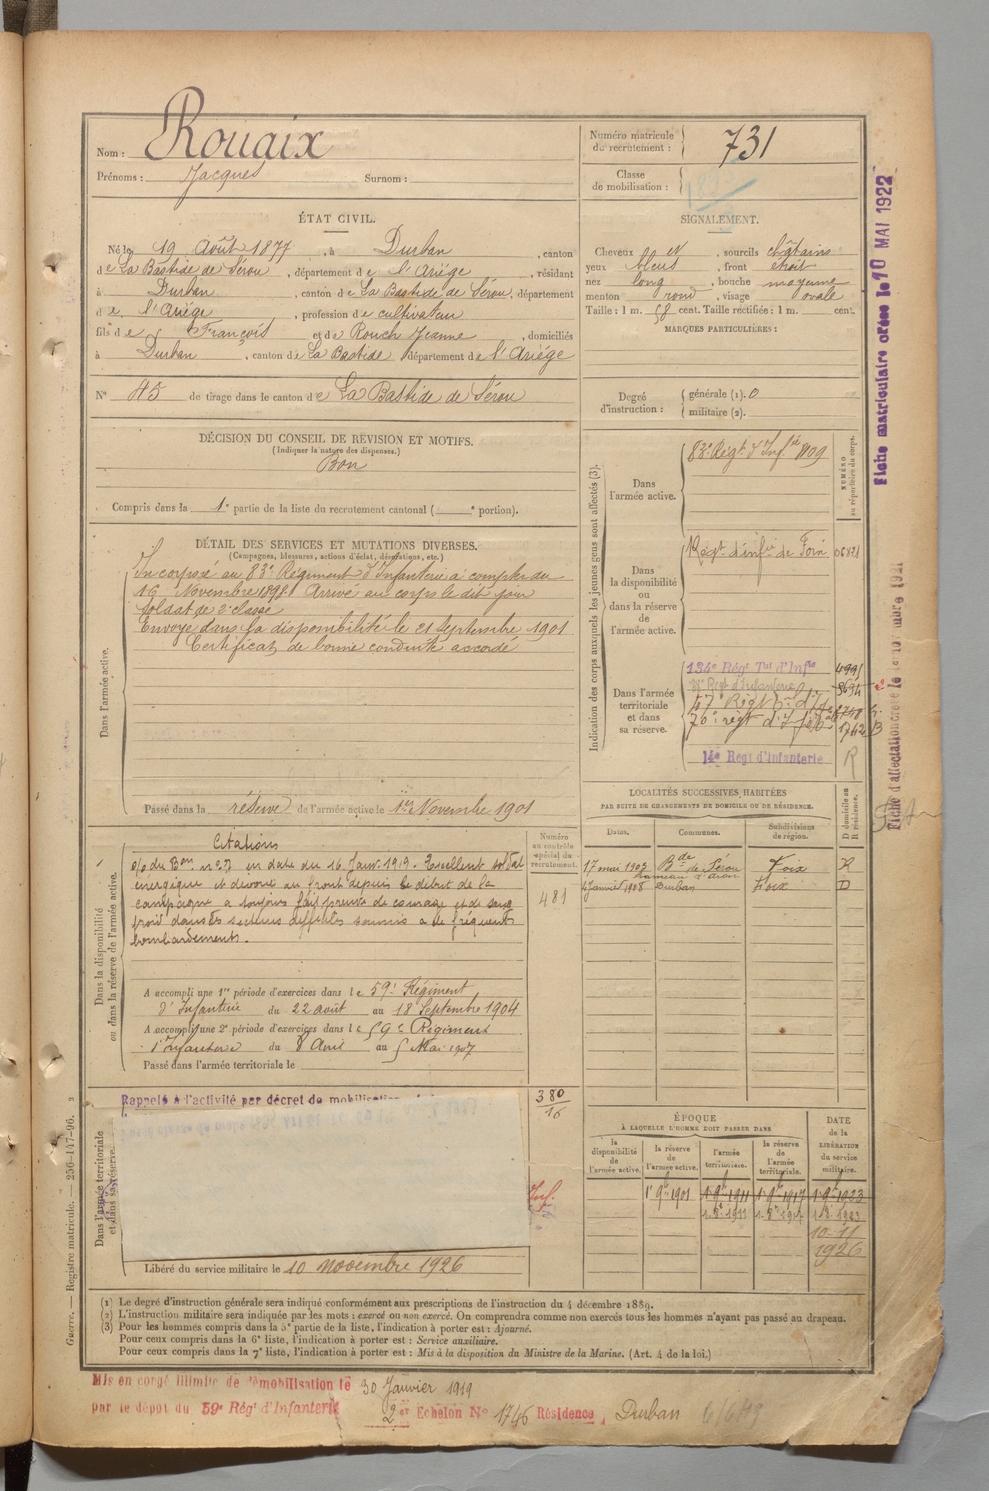 Nom : Rouaix
Prénoms : Jacques Surnom :
Numéro matricule du recrutement : 731
Classe de mobilisation :
ÉTAT CIVIL.
Né le 19 Août 1877, à Durban, canton
de La Bastide de Sérou, département de l'Ariége, résidant
à Durban, canton de La Bastide de Sérou, département
d e l'Ariége, profession de cultivateur
fils de François et de Rouch Jeanne, domiciliés
à Durban, canton de La Bastide département de l'Ariége
N° 45 de tirage dans le canton de La Bastide de Sérou
SIGNALEMENT.
Cheveux et, sourcils châtains
yeux bleus, front étroit
nez long, bouche moyenne
menton rond, visage ovale
Taille : 1 m. 58 cent. Taille rectifiée : 1 m. cent.
MARQUES PARTICULIÈRES :
Degré d'instruction : générale (1). 0
militaire (2).
DÉCISION DU CONSEIL DE RÉVISION ET MOTIFS.
(Indiquer la nature des dispenses.)
Bon
Compris dans la 1e partie de la liste du recrutement cantonal ( e portion).
DÉTAIL DES SERVICES ET MUTATIONS DIVERSES.
(Campagnes, blessures, actions d'éclat, décorations, etc.)
Dans l'armée active.
Incorporé au 83e Régiment d'Infanterie à compter du
16 Novembre 1898. Arrivé au corps le dit jour
soldat de 2e classe
Envoyé dans la disponibilité le 21 Septembre 1901
Certificat de bonne conduite accordé
Passé dans la réserve de l'armée active le 1er Novembre 1901
Indication des corps auxquels les jeunes gens sont affectés (3).
NUMÉRO au répertoire du corps.
Dans l'armée active.
83e Régt d'Infie
Dans la disponibilité ou dans la réserve de l'armée active.
Régt d'infie de Foix
Dans l'armée territoriale et dans sa réserve.
134e Régt Tal d'Infie 4991
Régt d'Infanterie
70e régt d'Infie 1762
14e Régt d'Infanterie R
LOCALITÉS SUCCESSIVES HABITÉES
PAR SUITE DE CHANGEMENTS DE DOMICILE OU DE RÉSIDENCE.
Dates. Communes. Subdivisions de région. D domicile ou R résidence.
17 mai 1903 Bde de Sérou Foix R
4 Janvier 1908 Durban Foix D
Dans la disponibilité ou dans la réserve de l'armée active.
Numéro au contrôle spécial du recrutement.
481
Citations
o/o du Bon n° 7 en date du 16 Janv. 1919. Excellent soldat
énergique et dévoué au front depuis le début de la
campagne a toujours fait preuve de courage et de sang
froid dans les secteurs difficiles soumis a de fréquents
bombardements.
A accompli une 1re période d'exercices dans le 59e Régiment
d'Infanterie du 22 août au 18 Septembre 1904
A accompli une 2e période d'exercices dans le 59e Régiment
d'Infanterie du 8 Avril au 5 Mai 1907
Passé dans l'armée territoriale le
Dans l'armée territoriale et dans sa réserve.
Rappelé à l'activité par décret de mobilisation
380
16
Libéré du service militaire le 10 novembre 1926
ÉPOQUE
À LAQUELLE L'HOMME DOIT PASSER DANS
la disponibilité de l'armée active. la réserve de l'armée active. l'armée territoriale. la réserve de l'armée territoriale. DATE de la LIBÉRATION du service militaire.
1er 9bre 1901 1er 9bre 1911 1er 9bre 1917 1er 9bre 1923
10-11
1926
(1) Le degré d'instruction générale sera indiqué conformément aux prescriptions de l'instruction du 4 décembre 1889.
(2) L'instruction militaire sera indiquée par les mots : exercé ou non exercé. On comprendra comme non exercés tous les hommes n'ayant pas passé au drapeau.
(3) Pour les hommes compris dans la 5e partie de la liste, l'indication à porter est : Ajourné.
Pour ceux compris dans la 6e liste, l'indication à porter est : Service auxiliaire.
Pour ceux compris dans la 7e liste, l'indication à porter est : Mis à la disposition du Ministre de la Marine. (Art. 4 de la loi.)
Mis en congé illimité de démobilisation le 30 Janvier 1919
par le dépôt du 59e Régt d'Infanterie
2er Echelon N° 1746 Résidence, Durban
Guerre. — Registre matricule. — 256-147-96.
Fiche matriculaire créée le 10 MAI 1922